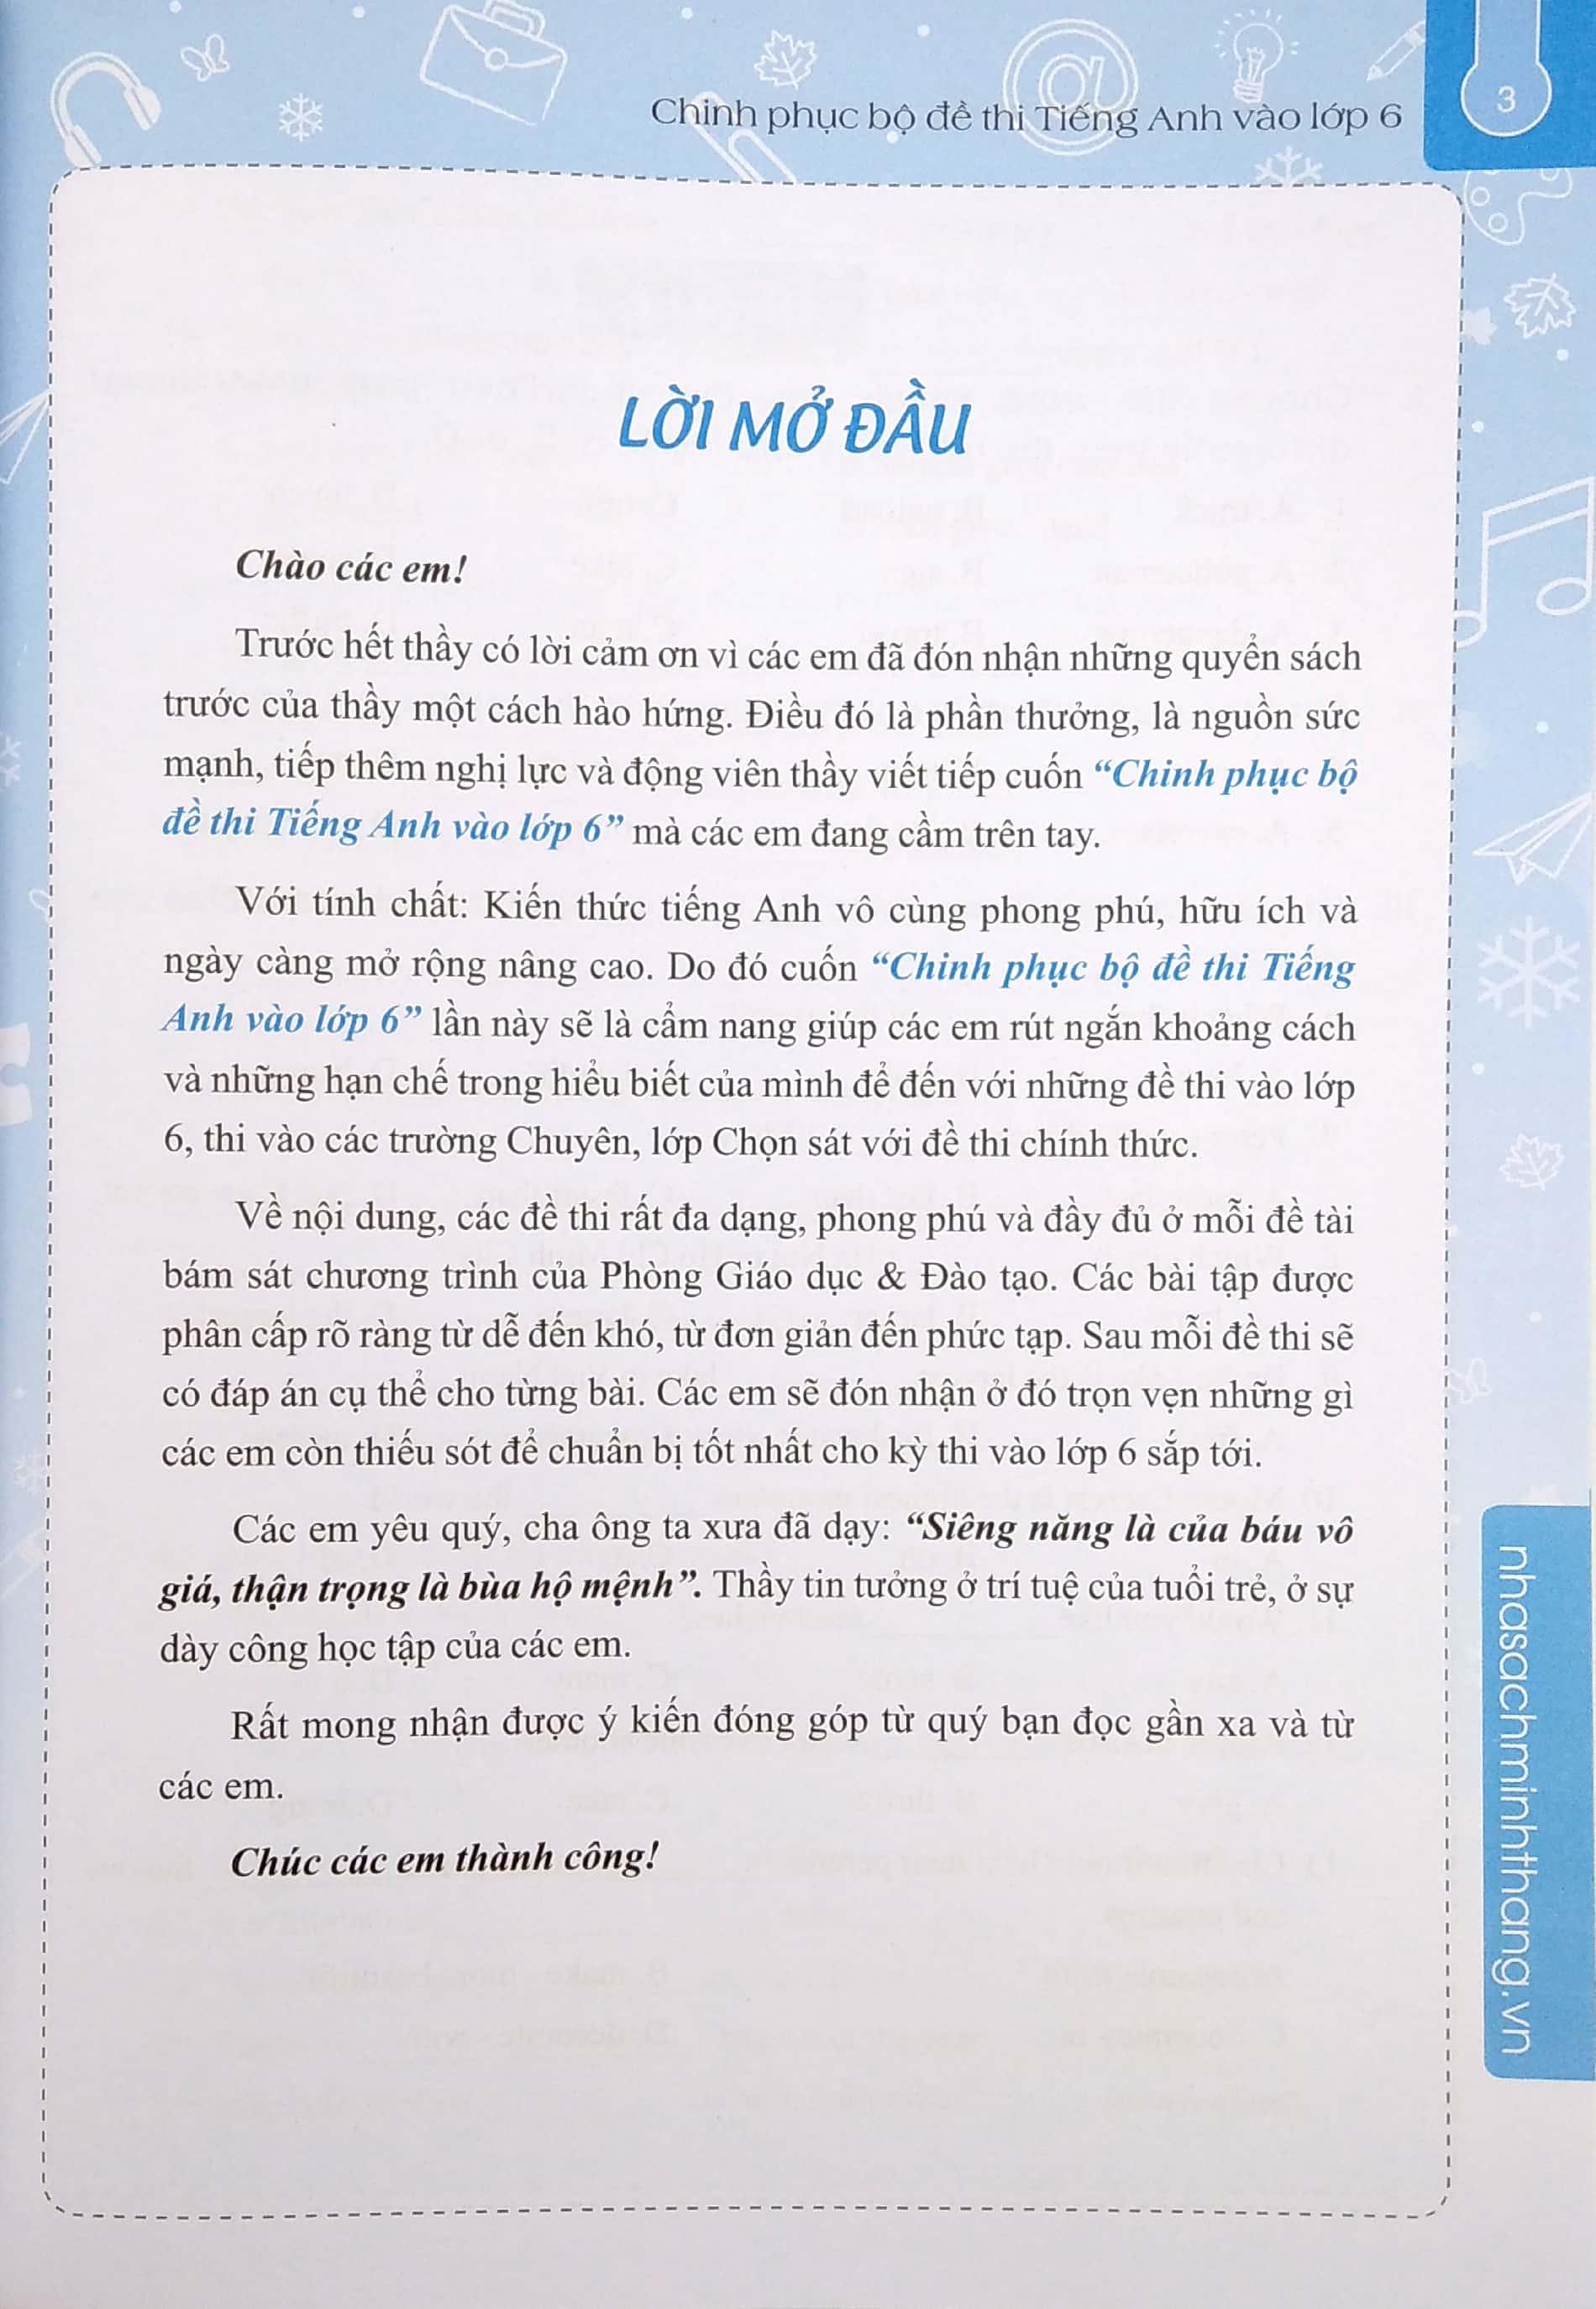 Chinh phục bộ đề thi Tiếng Anh vào lớp 6
3
LỜI MỞ ĐẦU
Chào các em!
Trước hết thầy có lời cảm ơn vì các em đã đón nhận những quyển sách
trước của thầy một cách hào hứng. Điều đó là phần thưởng, là nguồn sức
mạnh, tiếp thêm nghị lực và động viên thầy viết tiếp cuốn “Chinh phục bộ
đề thi Tiếng Anh vào lớp 6” mà các em đang cầm trên tay.
Với tính chất: Kiến thức tiếng Anh vô cùng phong phú, hữu ích và
ngày càng mở rộng nâng cao. Do đó cuốn “Chinh phục bộ đề thi Tiếng
Anh vào lớp 6” lần này sẽ là cẩm nang giúp các em rút ngắn khoảng cách
và những hạn chế trong hiểu biết của mình để đến với những đề thi vào lớp
6, thi vào các trường Chuyên, lớp Chọn sát với đề thi chính thức.
Về nội dung, các đề thi rất đa dạng, phong phú và đầy đủ ở mỗi đề tài
bám sát chương trình của Phòng Giáo dục & Đào tạo. Các bài tập được
phân cấp rõ ràng từ dễ đến khó, từ đơn giản đến phức tạp. Sau mỗi đề thi sẽ
có đáp án cụ thể cho từng bài. Các em sẽ đón nhận ở đó trọn vẹn những gì
các em còn thiếu sót để chuẩn bị tốt nhất cho kỳ thi vào lớp 6 sắp tới.
Các em yêu quý, cha ông ta xưa đã dạy: “Siêng năng là của báu vô
giá, thận trọng là bùa hộ mệnh”. Thầy tin tưởng ở trí tuệ của tuổi trẻ, ở sự
dày công học tập của các em.
Rất mong nhận được ý kiến đóng góp từ quý bạn đọc gần xa và từ
các em.
Chúc các em thành công!
nhasachminhthang.vn